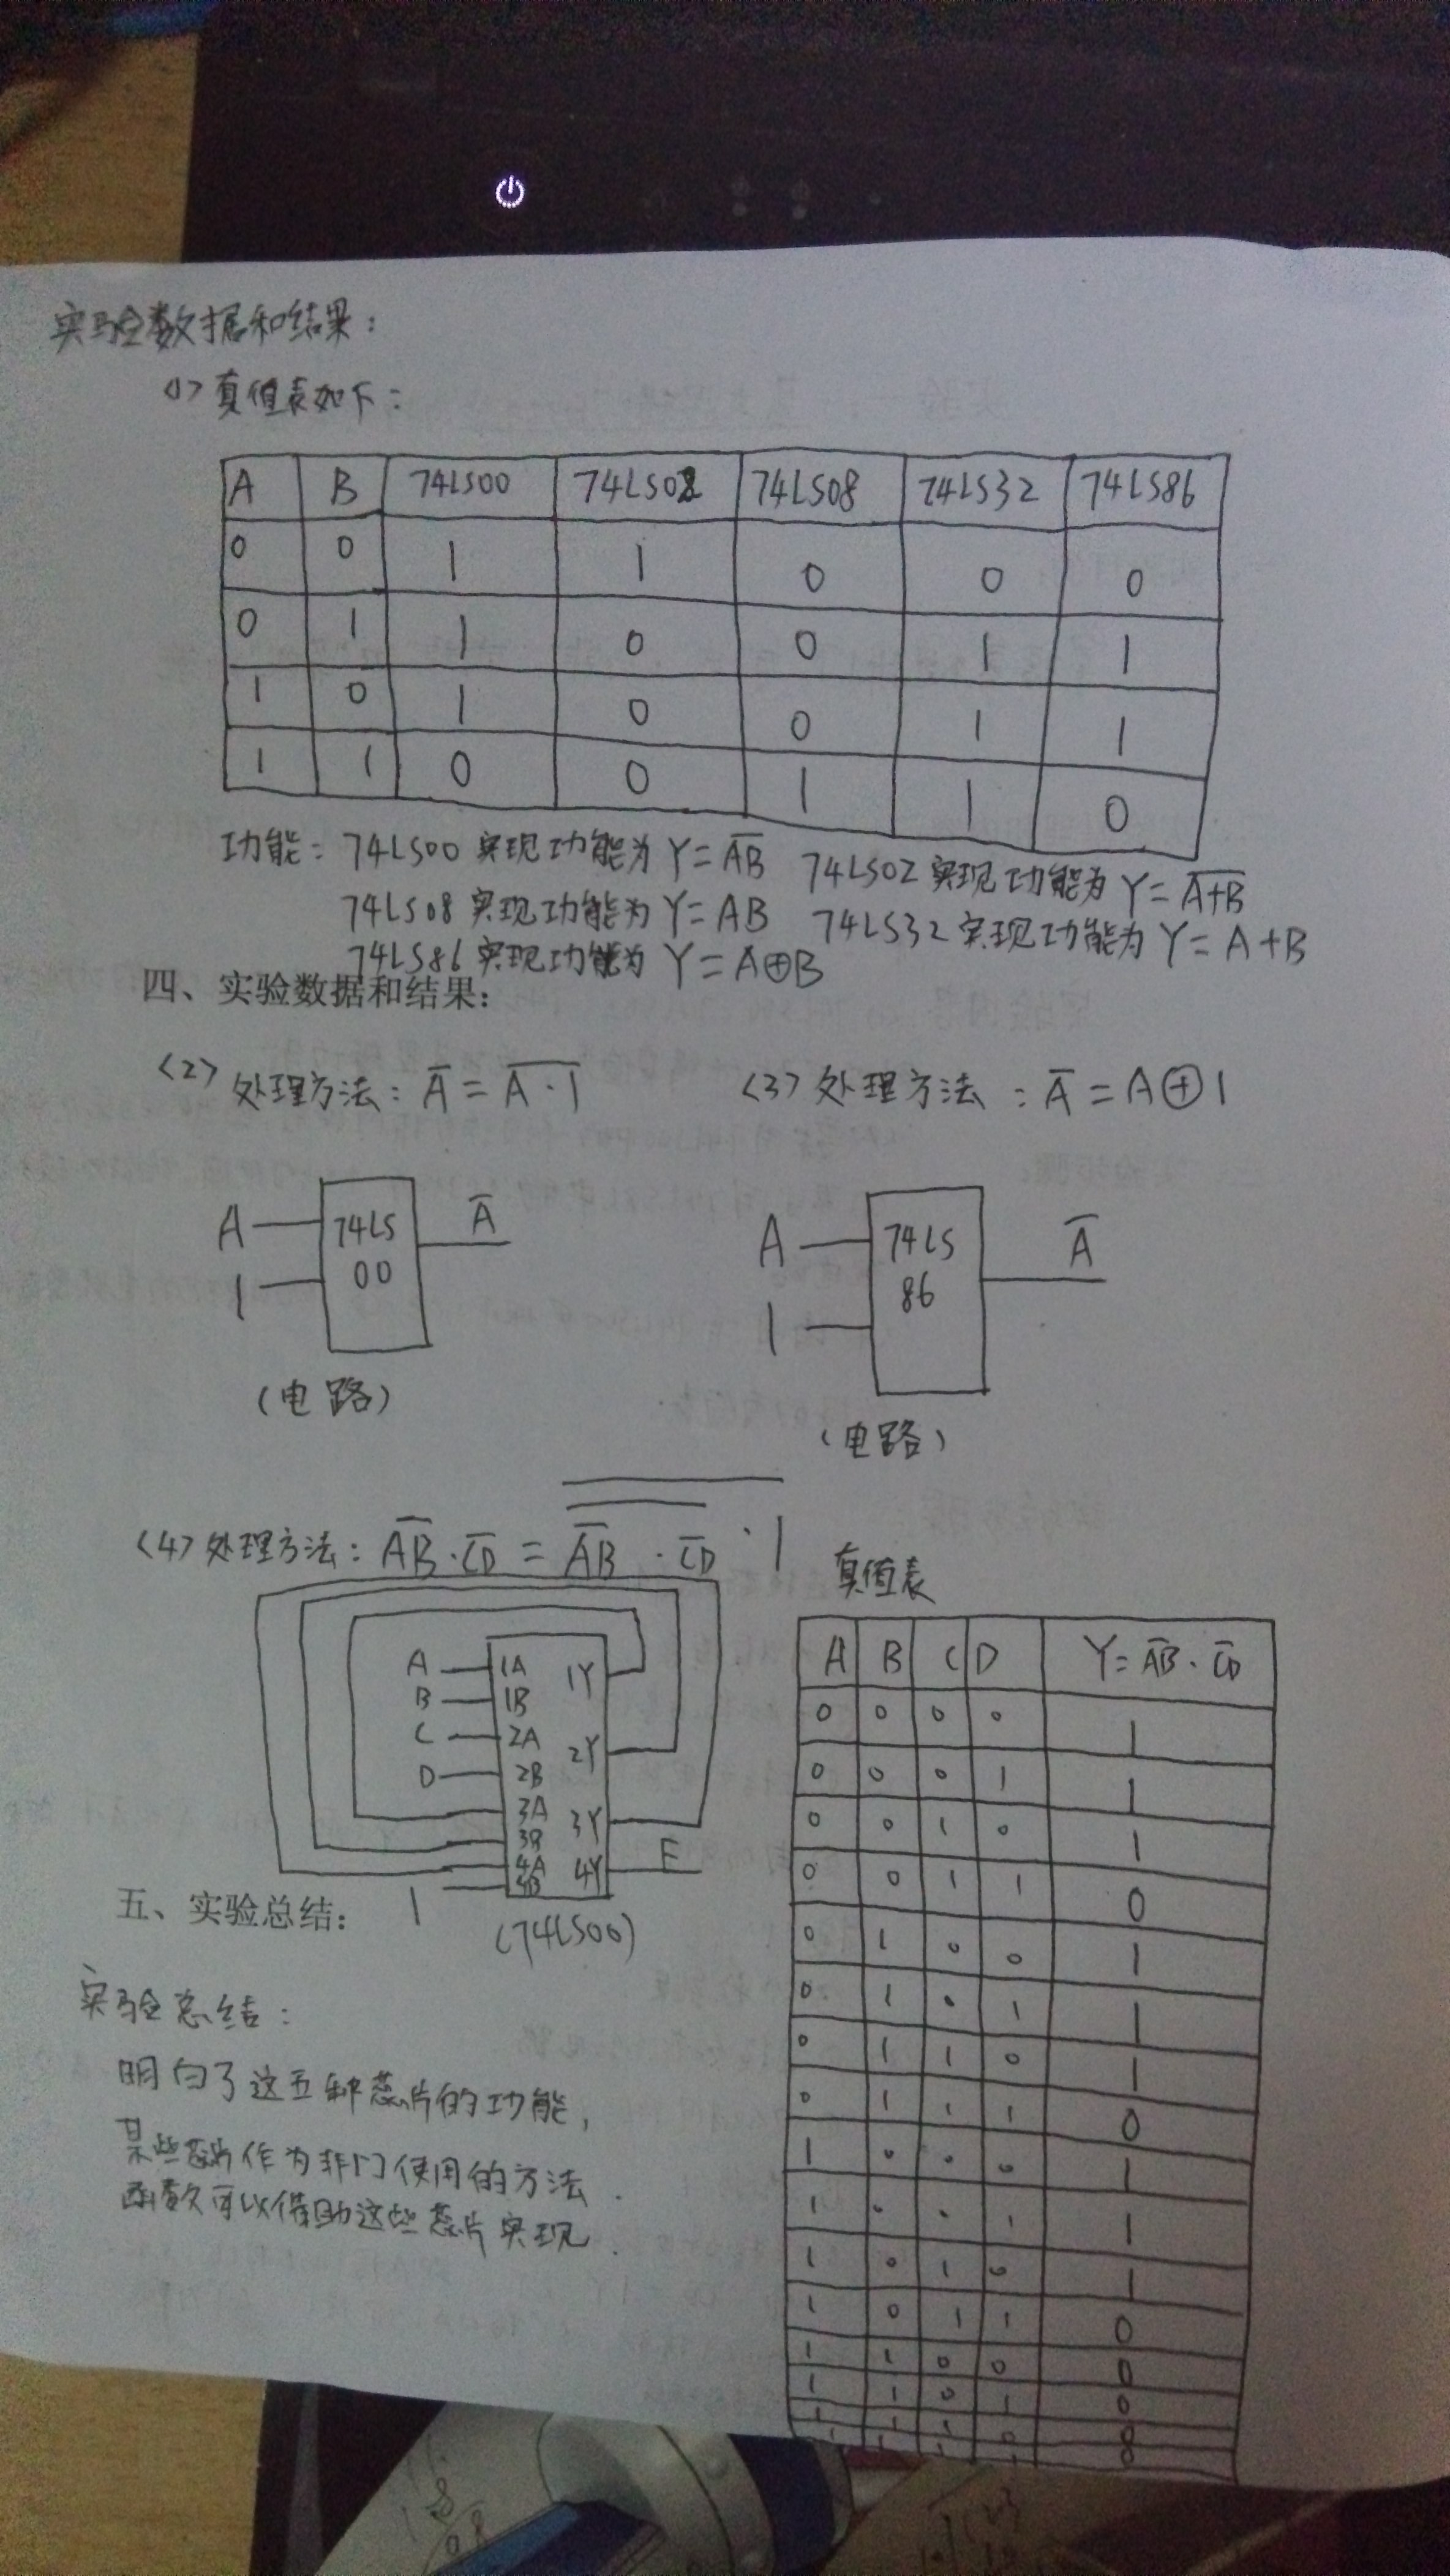 实验数据和结果:
<1>真值表如下:
A B 74LS00 74LS02 74LS08 74LS32 74LS86
0 0 1 1 0 0 0
0 1 1 0 0 1 1
1 0 1 0 0 1 1
1 1 0 0 1 1 0
功能: 74LS00 实现功能为 Y=A̅B̅ 74LS02 实现功能为 Y=A̅+̅B̅
74LS08 实现功能为 Y=AB 74LS32 实现功能为 Y=A+B
74LS86 实现功能为 Y=A⊕B
四、实验数据和结果:
<2> 处理方法: A̅ = A̅·̅1̅ <3> 处理方法: A̅ = A⊕1
A 74LS A̅
1 00
(电路)
A 74LS A̅
1 86
(电路)
<4> 处理方法: A̅B̅·C̅D̅ = A̅B̅·C̅D̅·1
A 1A 1Y
B 1B
C 2A 2Y
D 2B
3A 3Y
3B
4A 4Y F
1 4B
(74LS00)
真值表
A B C D Y=A̅B̅·C̅D̅
0 0 0 0 1
0 0 0 1 1
0 0 1 0 1
0 0 1 1 0
0 1 0 0 1
0 1 0 1 1
0 1 1 0 1
0 1 1 1 0
1 0 0 0 1
1 0 0 1 1
1 0 1 0 1
1 0 1 1 0
1 1 0 0 0
1 1 0 1 0
1 1 1 0 0
1 1 1 1 0
五、实验总结:
实验总结:
明白了这五种芯片的功能,
某些芯片作为非门使用的方法.
函数可以借助这些芯片实现.